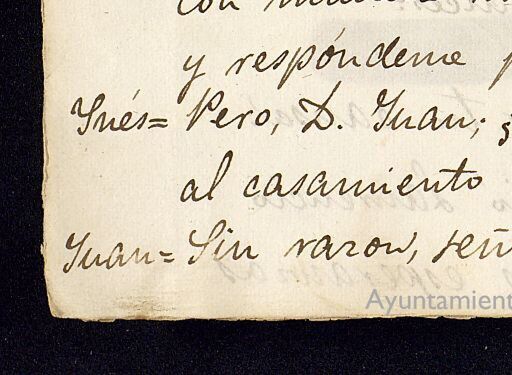 con
y respóndeme
Ynés= Pero, D. Juan; ¿
al casamiento
Juan= Sin razon, señ
Ayuntamient